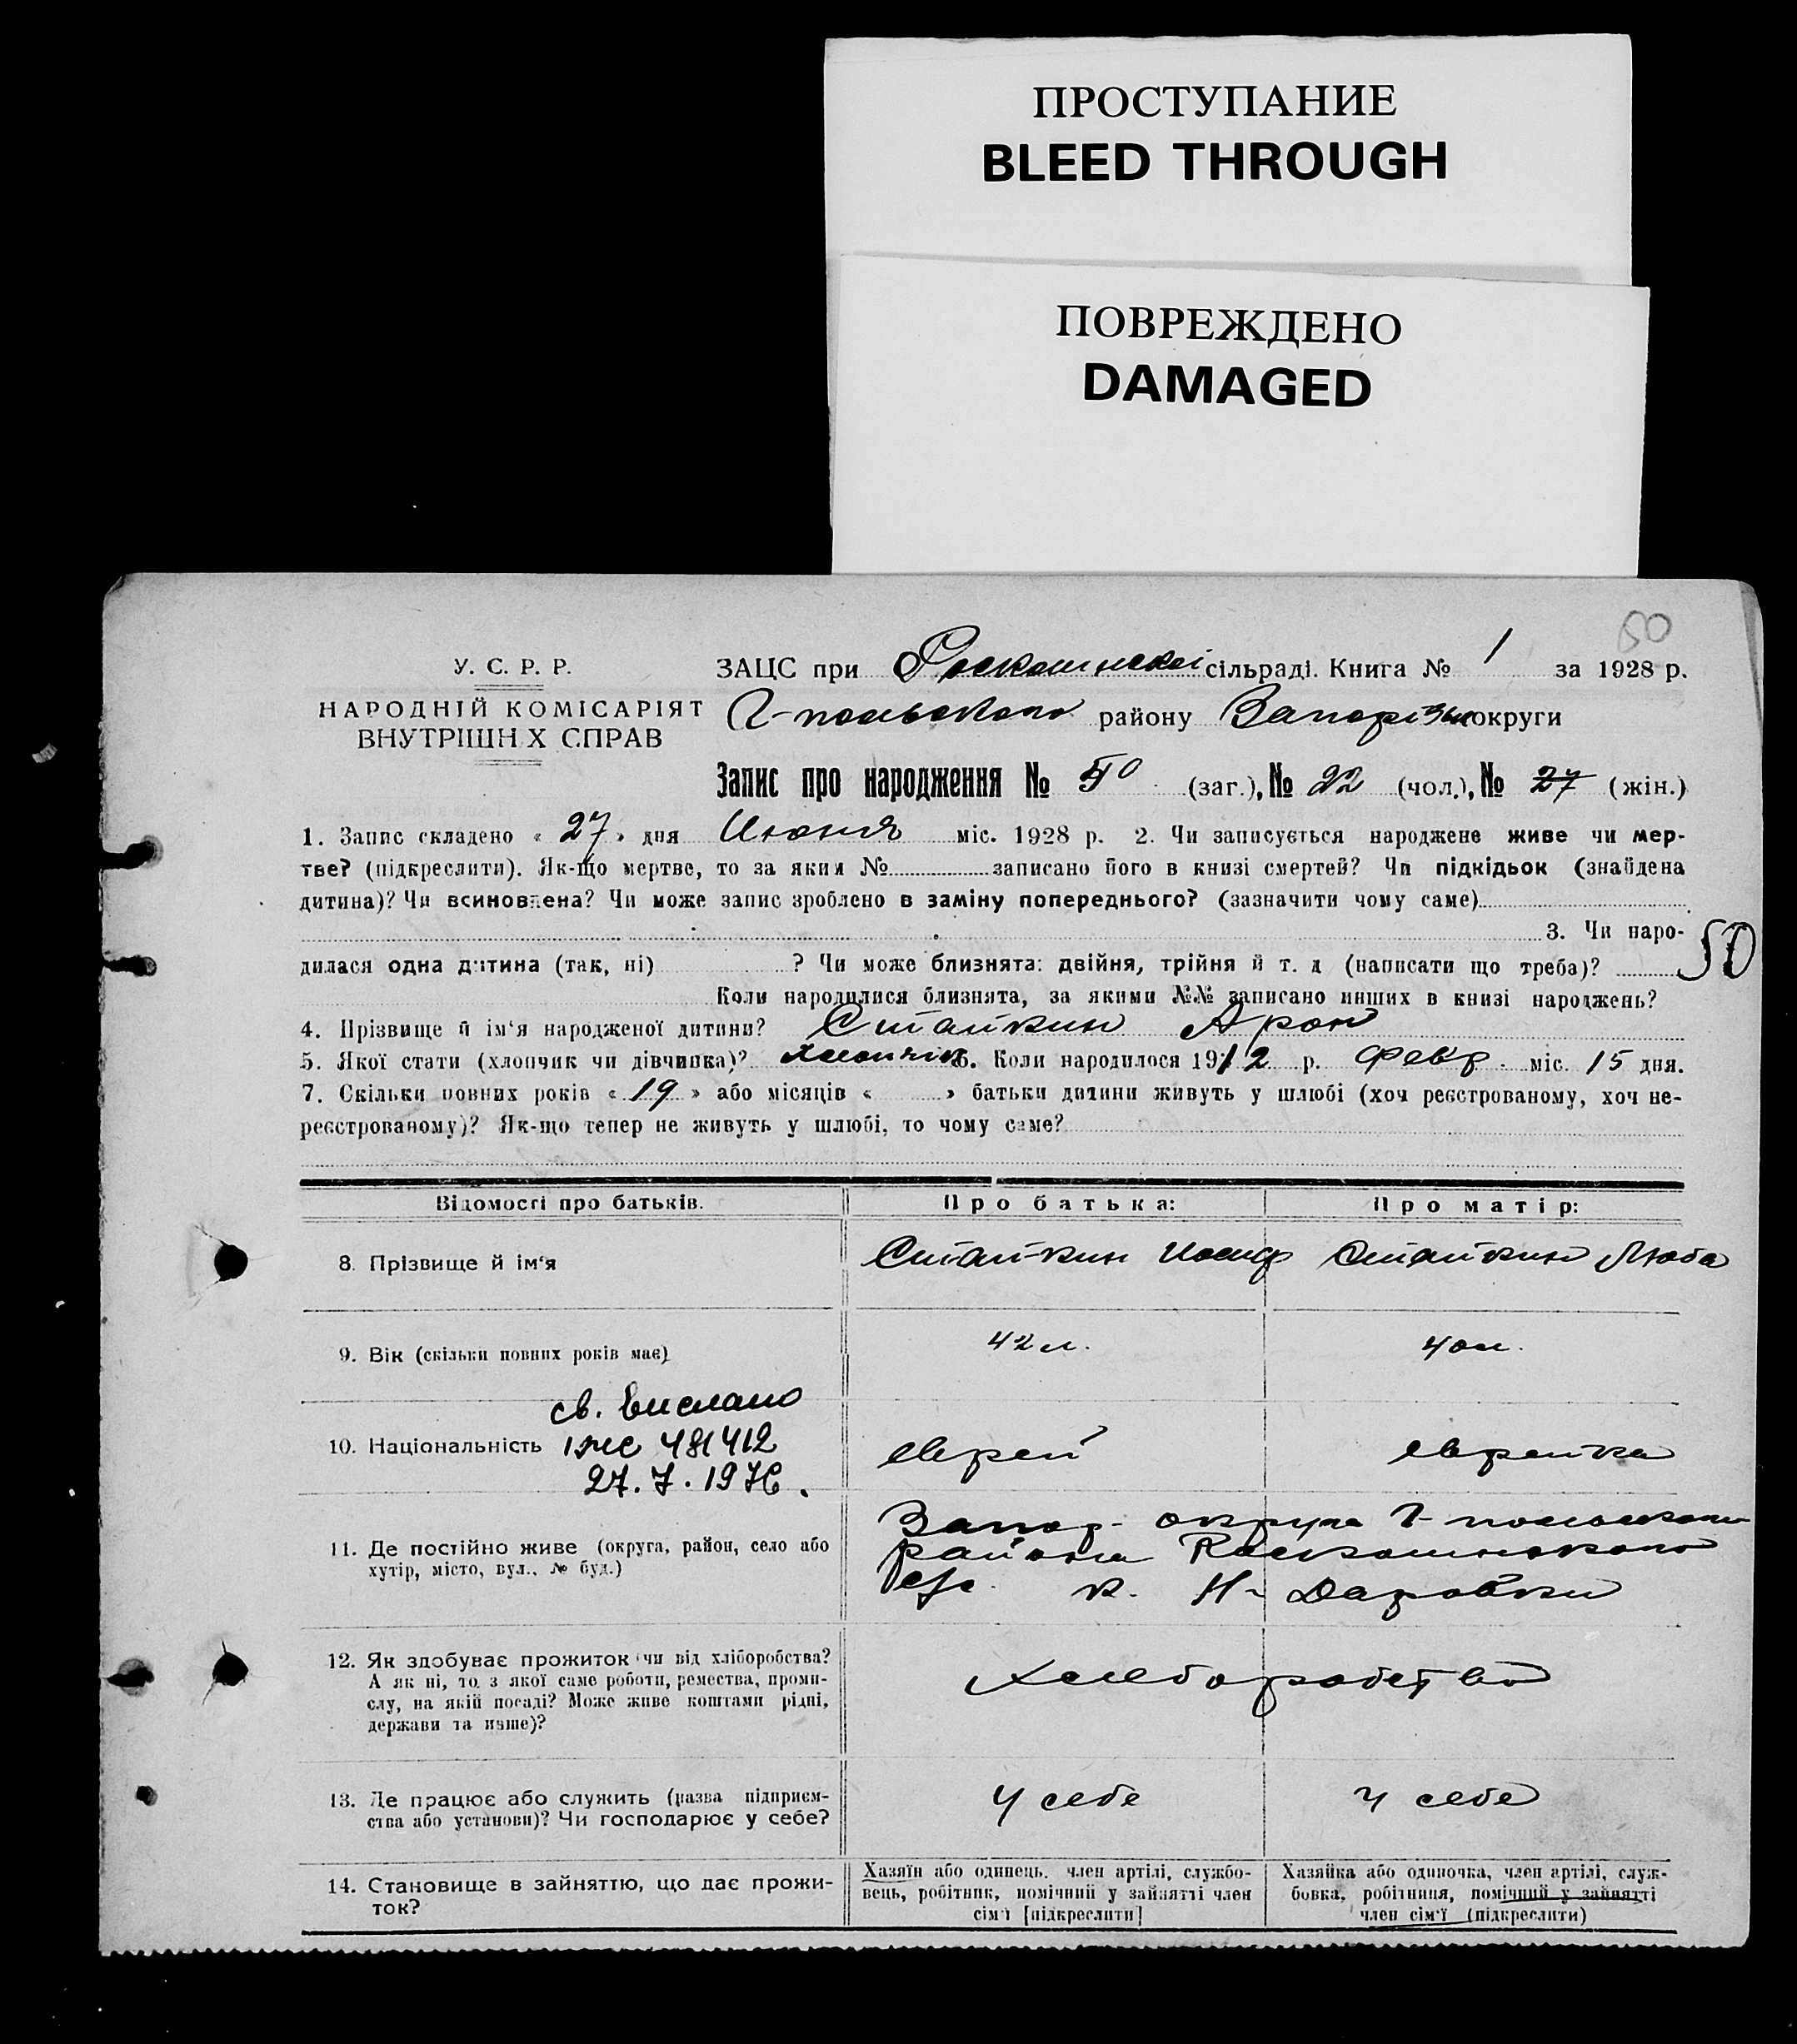 ПРОСТУПАНИЕ
BLEED THROUGH
ПОВРЕЖДЕНО
DAMAGED
50
У. С. Р. Р.
НАРОДНІЙ КОМІСАРІЯТ
ВНУТРІШН Х СПРАВ
ЗАЦС при Роскошнской сільраді. Книга № 1 за 1928 р.
Г-польского району Запорізьк округи
Запис про народження № 50 (заг.), № 22 (чол.), № 27 (жін.)
1. Запис складено « 27 » дня Июня міс. 1928 р. 2. Чи записується народжене живе чи мер-
тве? (підкреслити). Як-що мертве, то за яким № записано його в книзі смертей? Чи підкідьок (знайдена
дитина)? Чи всиновлена? Чи може запис зроблено в заміну попереднього? (зазначити чому саме)
3. Чи наро-
50
дилася одна дитина (так, ні) ? Чи може близнята: двійня, трійня й т. д (написати що треба)?
Коли народилися близнята, за якими №№ записано инших в книзі народжень?
4. Прізвище й ім‘я народженої дитини? Стайкин Арон
5. Якої стати (хлопчик чи дівчинка)? Хлопчик 6. Коли народилося 1912 р. февр. міс. 15 дня.
7. Скільки повних років « 19 » або місяців « » батьки дитини живуть у шлюбі (хоч реєстрованому, хоч не-
реєстрованому)? Як-що тепер не живуть у шлюбі, то чому саме?
Відомості про батьків. Про батька: Про матір:
8. Прізвище й ім‘я Стайкин Иосиф Стайкин Люба
9. Вік (скільки повних років має) 42 л. 40 л.
св. выслано
10. Національність 1ЖС 481412 еврей еврейка
27.7.1976.
11. Де постійно живе (округа, район, село або
хутір, місто, вул., № буд.)
Запор- округа Г- польского
района Роскошнского
с/с. к. Н- Даровки
12. Як здобуває прожиток чи від хліборобства?
А як ні, то з якої саме роботи, ремества, проми-
слу, на якій посаді? Може живе коштами рідні,
держави та инше)?
Хлеборобство
13. Де працює або служить (назва підприєм-
ства або установи)? Чи господарює у себе?
у себе у себе
14. Становище в зайняттю, що дає прожи-
ток?
Хазяїн або одинець. член артілі, службо-
вець, робітник, помічний у зайнятті член
сім‘ї [підкреслити]
Хазяйка або одиночка, член артілі, служ-
бовка, робітниця, помічний у зайнятті
член сім‘ї (підкреслити)